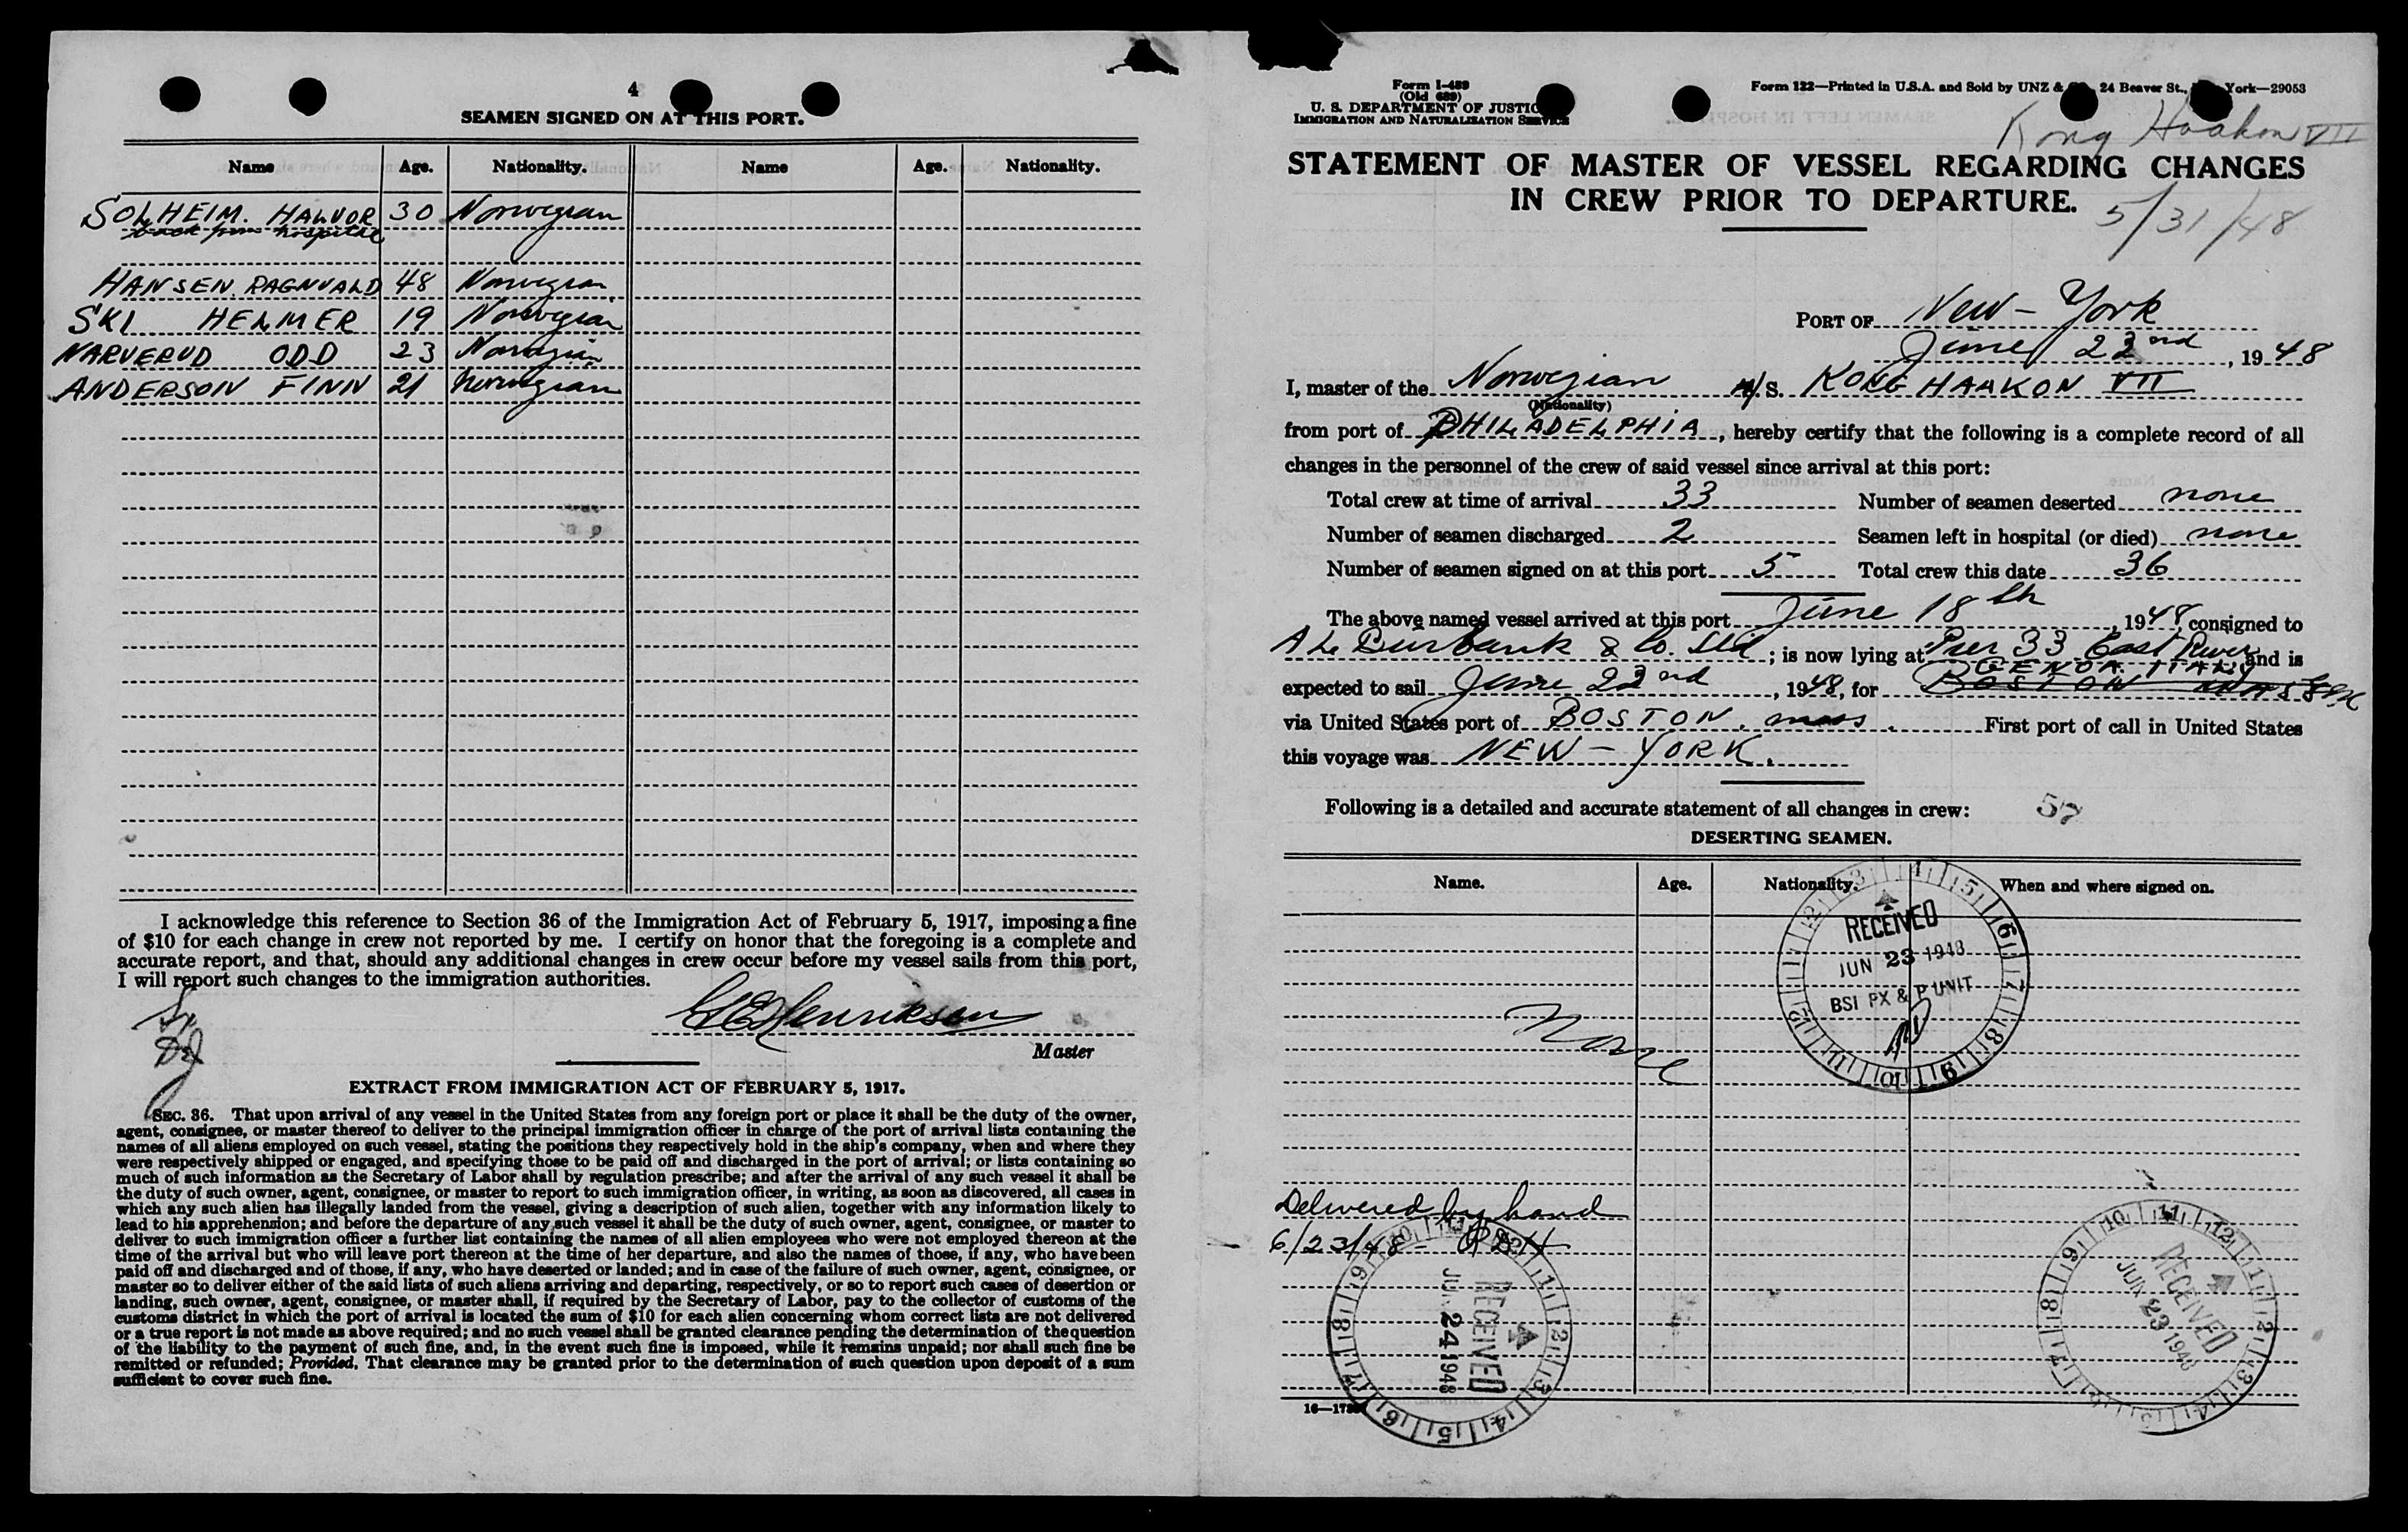 4
SEAMEN SIGNED ON AT THIS PORT.
Name Age. Nationality. Name Age. Nationality.
SOLHEIM. HALVOR 30 Norwegian
back from hospital
HANSEN. RAGNVALD 48 Norwegian
SKI HELMER 19 Norwegian
NARVERUD ODD 23 Norwegian
ANDERSON FINN 21 Norwegian
I acknowledge this reference to Section 36 of the Immigration Act of February 5, 1917, imposing a fine
of $10 for each change in crew not reported by me. I certify on honor that the foregoing is a complete and
accurate report, and that, should any additional changes in crew occur before my vessel sails from this port,
I will report such changes to the immigration authorities.
Henriksen
Master
EXTRACT FROM IMMIGRATION ACT OF FEBRUARY 5, 1917.
SEC. 36. That upon arrival of any vessel in the United States from any foreign port or place it shall be the duty of the owner,
agent, consignee, or master thereof to deliver to the principal immigration officer in charge of the port of arrival lists containing the
names of all aliens employed on such vessel, stating the positions they respectively hold in the ship's company, when and where they
were respectively shipped or engaged, and specifying those to be paid off and discharged in the port of arrival; or lists containing so
much of such information as the Secretary of Labor shall by regulation prescribe; and after the arrival of any such vessel it shall be
the duty of such owner, agent, consignee, or master to report to such immigration officer, in writing, as soon as discovered, all cases in
which any such alien has illegally landed from the vessel, giving a description of such alien, together with any information likely to
lead to his apprehension; and before the departure of any such vessel it shall be the duty of such owner, agent, consignee, or master to
deliver to such immigration officer a further list containing the names of all alien employees who were not employed thereon at the
time of the arrival but who will leave port thereon at the time of her departure, and also the names of those, if any, who have been
paid off and discharged and of those, if any, who have deserted or landed; and in case of the failure of such owner, agent, consignee, or
master so to deliver either of the said lists of such aliens arriving and departing, respectively, or so to report such cases of desertion or
landing, such owner, agent, consignee, or master shall, if required by the Secretary of Labor, pay to the collector of customs of the
customs district in which the port of arrival is located the sum of $10 for each alien concerning whom correct lists are not delivered
or a true report is not made as above required; and no such vessel shall be granted clearance pending the determination of the question
of the liability to the payment of such fine, and, in the event such fine is imposed, while it remains unpaid; nor shall such fine be
remitted or refunded; Provided, That clearance may be granted prior to the determination of such question upon deposit of a sum
sufficient to cover such fine.
Form I-489
(Old 689)
U. S. DEPARTMENT OF JUSTICE
IMMIGRATION AND NATURALIZATION SERVICE
Form 122—Printed in U.S.A. and Sold by UNZ & 24 Beaver St., York—29053
Kong Haakon VII
STATEMENT OF MASTER OF VESSEL REGARDING CHANGES
IN CREW PRIOR TO DEPARTURE.
5/31/48
PORT OF New-York
June 22nd, 1948
I, master of the Norwegian M/S. KONG HAAKON VII
(Nationality)
from port of PHILADELPHIA, hereby certify that the following is a complete record of all
changes in the personnel of the crew of said vessel since arrival at this port:
Total crew at time of arrival 33 Number of seamen deserted none
Number of seamen discharged 2 Seamen left in hospital (or died) none
Number of seamen signed on at this port 5 Total crew this date 36
The above named vessel arrived at this port June 18th, 1948, consigned to
A L Burbank & Co. Ltd; is now lying at Pier 33 East River and is
GENOA ITALY
expected to sail June 22nd, 1948, for BOSTON
via United States port of BOSTON. mass. First port of call in United States
this voyage was NEW-YORK.
Following is a detailed and accurate statement of all changes in crew:
57
DESERTING SEAMEN.
Name. Age. Nationality. When and where signed on.
RECEIVED
JUN 23 1948
BSI PX & P UNIT
None
Delivered by hand
6/23/48
RECEIVED
JUN 24 1948
RECEIVED
JUN 23 1948
16—173